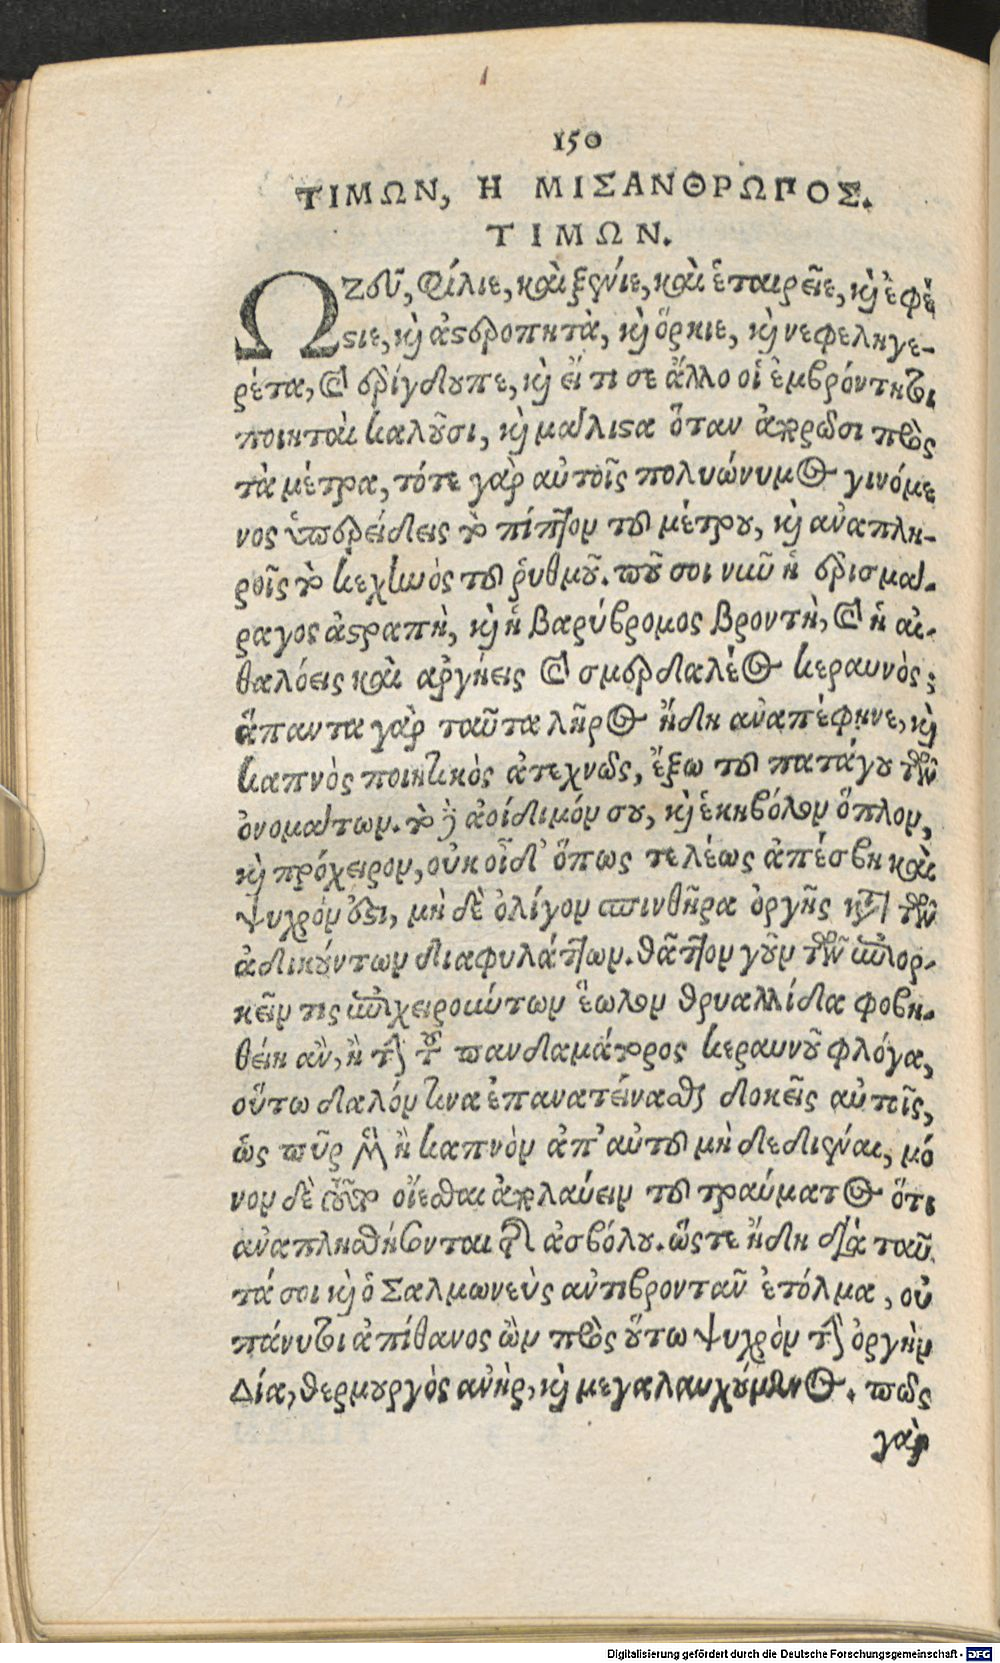 150
ΤΙΜΩΝ, Η ΜΙΣΑΝΘΡΩΠΟΣ.
ΤΙΜΩΝ.
Ὦ Ζεῦ, φίλιε, καὶ ξένιε, καὶ ἑταιρεῖε, καὶ ἐφέ
στιε, καὶ ἀστεροπητὰ, καὶ ὅρκιε, καὶ νεφεληγε-
ρέτα, καὶ ἐρίγδουπε, καὶ εἴ τι σε ἄλλο οἱ ἐμβρόντητοι
ποιηταὶ καλοῦσι, καὶ μάλιστα ὅταν ἀπορῶσι πρὸς
τὰ μέτρα, τότε γὰρ αὐτοῖς πολυώνυμος γινόμε
νος ὑπερείδεις τὸ πίπτον τοῦ μέτρου, καὶ ἀναπλη-
ροῖς τὸ κεχηνὸς τοῦ ῥυθμοῦ. ποῦ σοι νῦν ἡ ἐρισμά-
ραγος ἀστραπὴ, καὶ ἡ βαρύβρομος βροντὴ, καὶ ἡ αἰ-
θαλόεις καὶ ἀργήεις καὶ σμερδαλέος κεραυνὸς;
ἅπαντα γὰρ ταῦτα λῆρος ἤδη ἀναπέφηνε, καὶ
καπνὸς ποιητικὸς ἀτεχνῶς, ἔξω τοῦ πατάγου τῶν
ὀνομάτων. τὸ δὲ ἀοίδιμόν σου, καὶ ἑκηβόλον ὅπλον,
καὶ πρόχειρον, οὐκ οἶδ' ὅπως τελέως ἀπέσβη καὶ
ψυχρόν ἐστι, μὴ δὲ ὀλίγον σπινθῆρα ὀργῆς κατὰ τῶν
ἀδικούντων διαφυλάττων. θᾶττον γοῦν τῶν ἐπιορ-
κεῖν τις ἐπιχειρούντων ἕωλον θρυαλλίδα φοβη-
θείη ἂν, ἢ τὴν τοῦ πανδαμάτορος κεραυνοῦ φλόγα,
οὕτω δαλόν τινα ἐπανατείνασθαι δοκεῖς αὐτοῖς,
ὡς πῦρ μὲν ἢ καπνὸν ἀπ' αὐτοῦ μὴ δεδιέναι, μό
νον δὲ τοῦτο οἴεσθαι ἀπολαύειν τοῦ τραύματος ὅτι
ἀναπλησθήσονται τῆς ἀσβόλου. ὥστε ἤδη διὰ ταῦ
τά σοι καὶ ὁ Σαλμωνεὺς ἀντιβροντᾶν ἐτόλμα, οὐ
πάνυ τοι ἀπίθανος ὢν πρὸς οὕτω ψυχρὸν τὴν ὀργὴν
Δία, θερμουργὸς ἀνὴρ, καὶ μεγαλαυχούμενος. πῶς
γὰρ
Digitalisierung gefördert durch die Deutsche Forschungsgemeinschaft - DFG